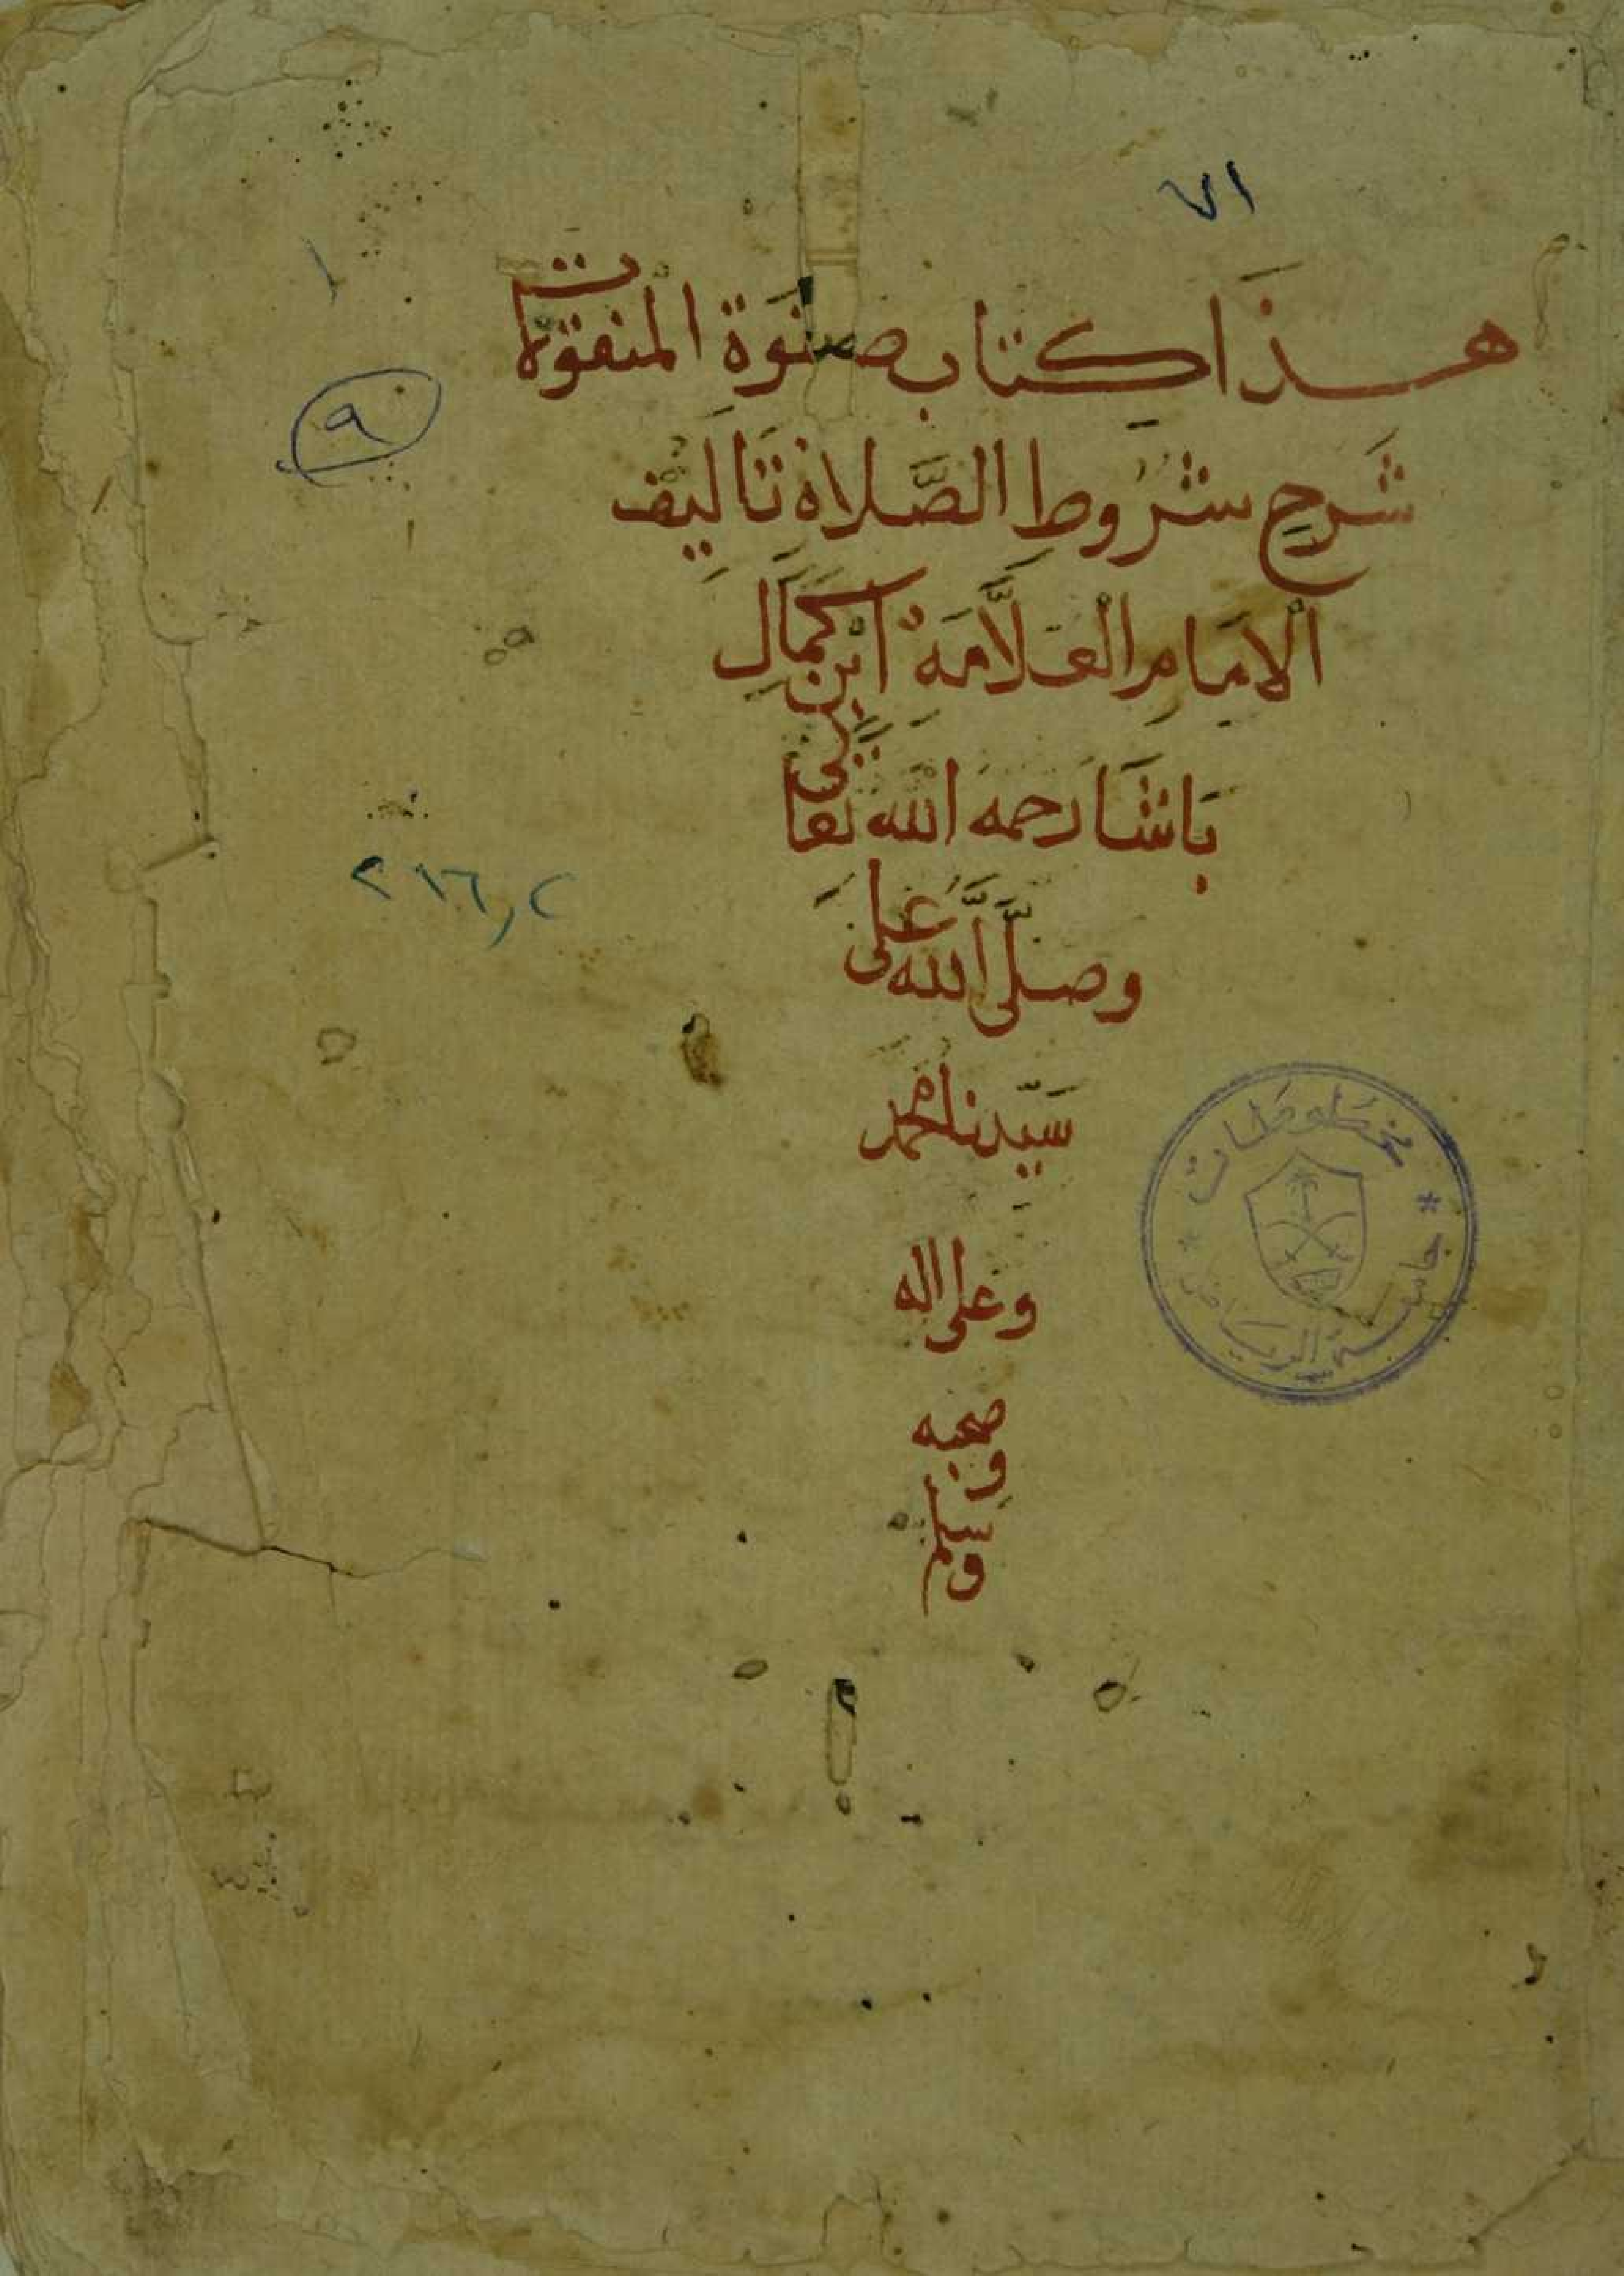 ٧١
١
هذا كتاب صفوة المنقولات
٩
شَرح شرُوط الصَّلاة تَاليف
الامَامِ العَلَّامَة ابن كمَال
بَاشَا رَحمهُ الله تعالى
٢١٦٫٢
وصلَّى اللَّه عَلى
سَيّدنا محمد
وعلى اله
وصحبه
وسلم
مخطوطات
جامعة الرياض